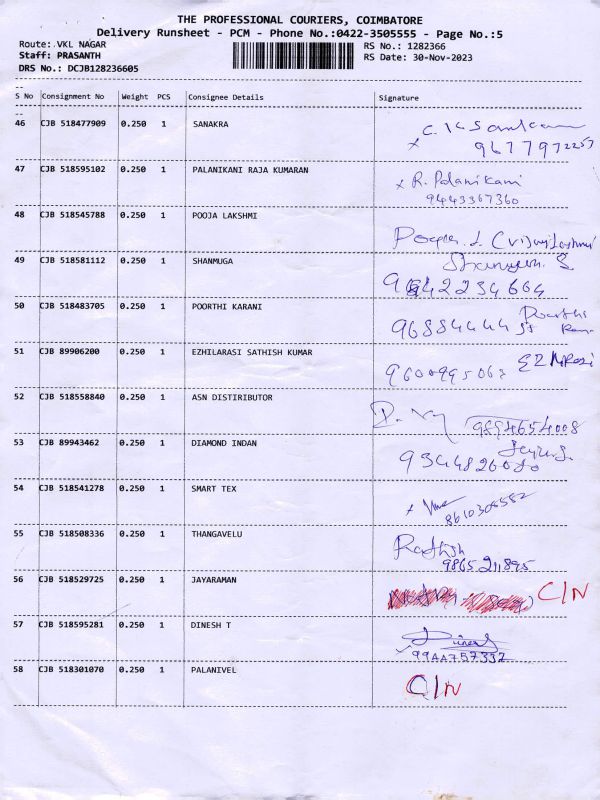 THE PROFESSIONAL COURIERS, COIMBATORE
Delivery Runsheet - PCM - Phone No.:0422-3505555 - Page No.:5
Route: VKL NAGAR RS No.: 1282366
Staff: PRASANTH RS Date: 30-Nov-2023
DRS No.: DCJB128236605
S No Consignment No Weight PCS Consignee Details Signature
46 CJB 518477909 0.250 1 SANAKRA
47 CJB 518595102 0.250 1 PALANIKANI RAJA KUMARAN x R. Palanikani
9443367360
48 CJB 518545788 0.250 1 POOJA LAKSHMI
49 CJB 518581112 0.250 1 SHANMUGA
50 CJB 518483705 0.250 1 POORTHI KARANI
51 CJB 89906200 0.250 1 EZHILARASI SATHISH KUMAR
52 CJB 518558840 0.250 1 ASN DISTIRIBUTOR
9894654008
53 CJB 89943462 0.250 1 DIAMOND INDAN
54 CJB 518541278 0.250 1 SMART TEX
55 CJB 518508336 0.250 1 THANGAVELU
9865211895
56 CJB 518529725 0.250 1 JAYARAMAN C/N
57 CJB 518595281 0.250 1 DINESH T
58 CJB 518301070 0.250 1 PALANIVEL C/N